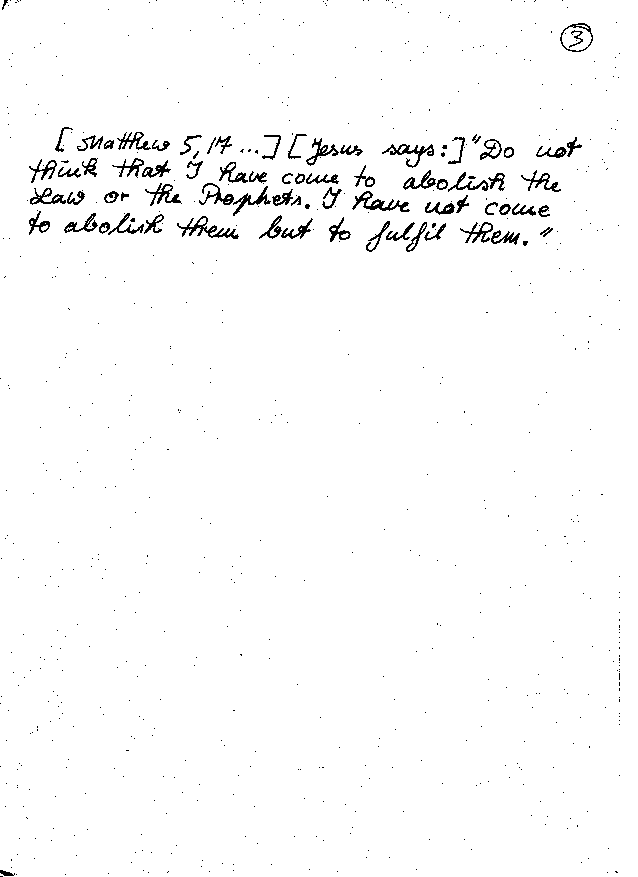 3
[Matthew 5,17 ...] [Jesus says:] "Do not
think that I have come to abolish the
Law or the Prophets. I have not come
to abolish them but to fulfil them."